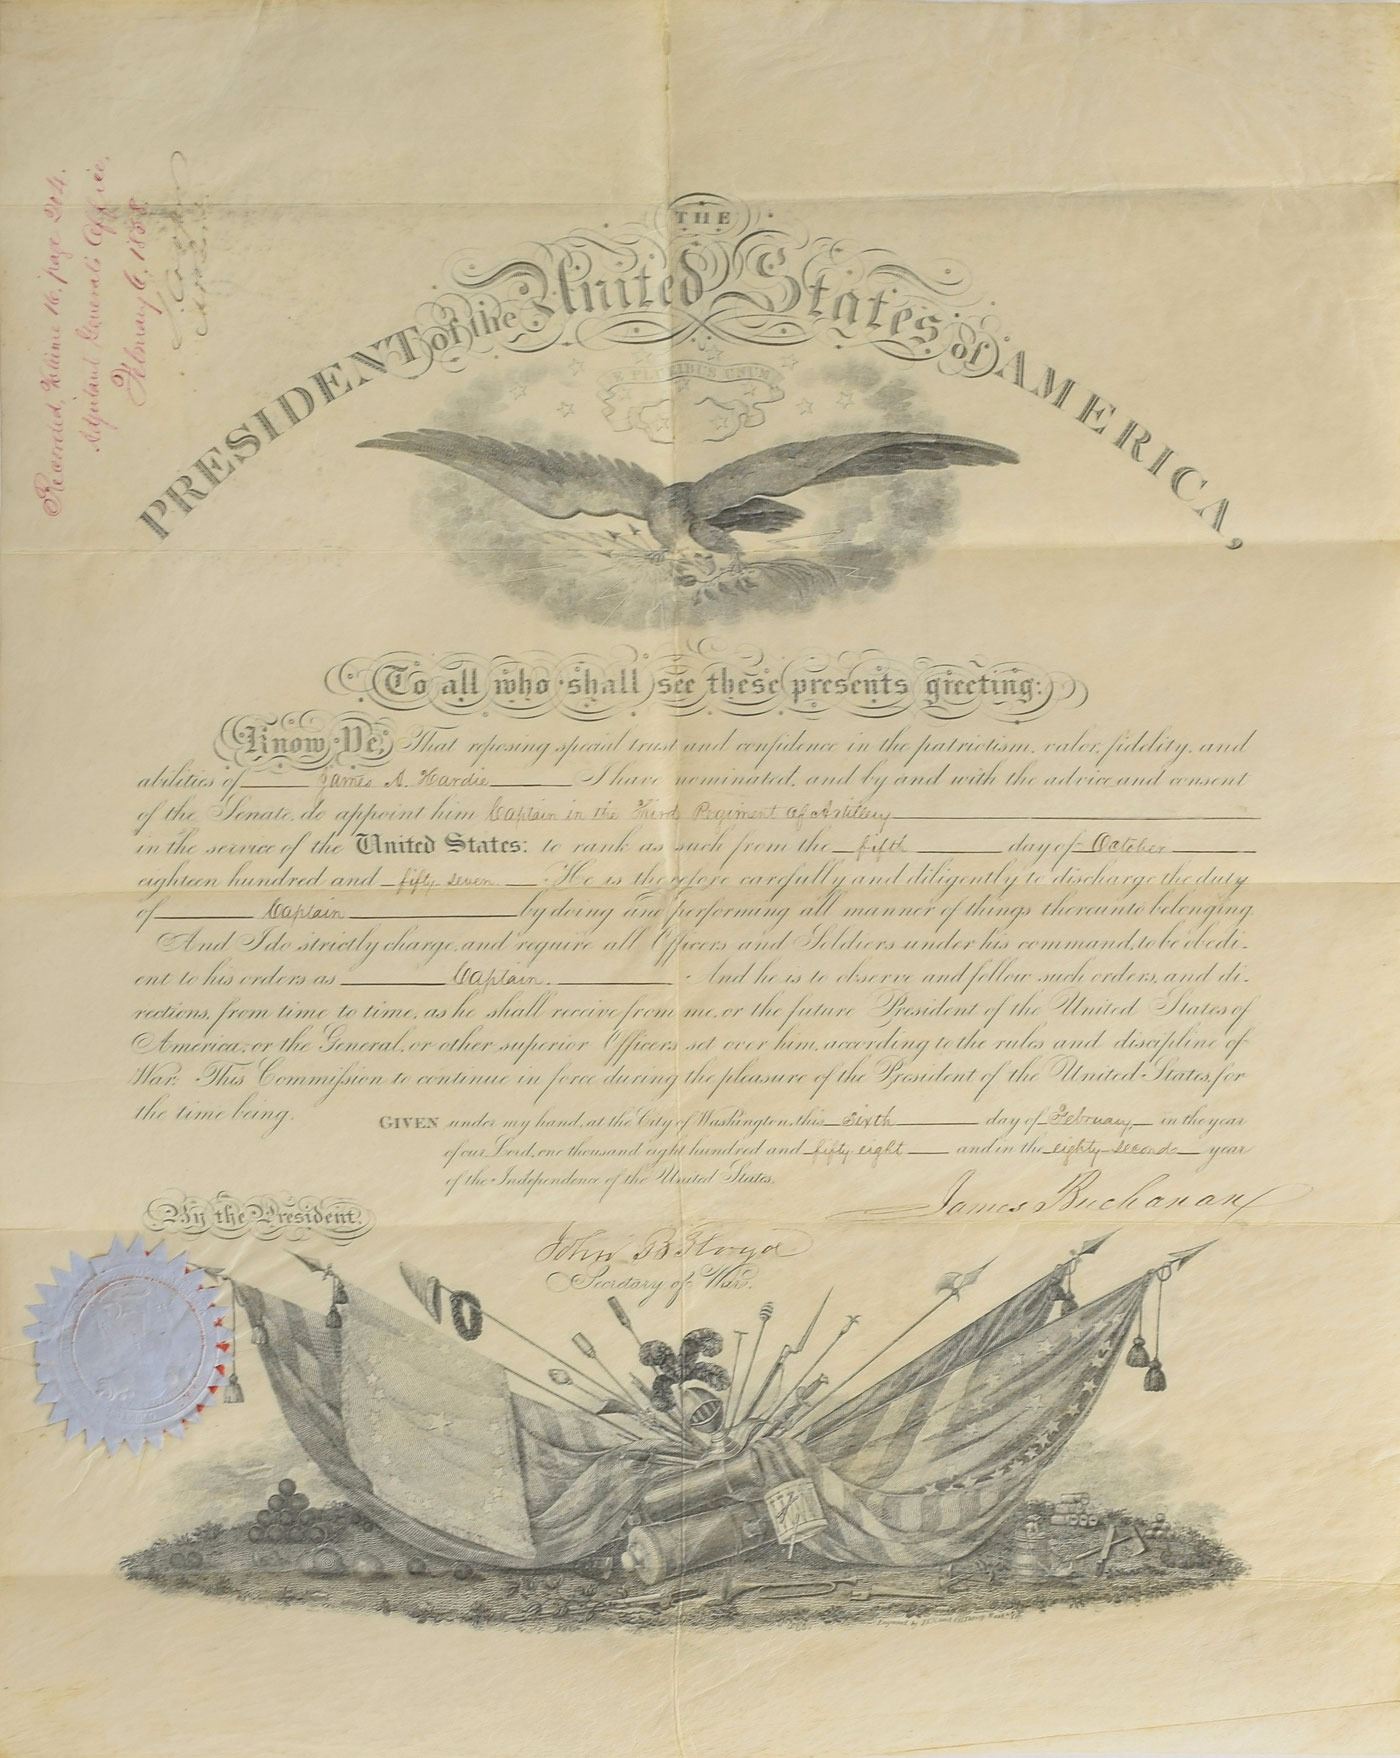 THE
PRESIDENT of the United States of AMERICA,
E PLURIBUS UNUM
To all who shall see these presents greeting:
Know Ye, That reposing special trust and confidence in the patriotism, valor, fidelity, and
abilities of James A. Hardie I have nominated, and by and with the advice and consent
of the Senate, do appoint him Captain in the Third Regiment of Artillery
in the service of the United States: to rank as such from the fifth day of October
eighteen hundred and fifty seven. He is therefore carefully and diligently to discharge the duty
of Captain by doing and performing all manner of things thereunto belonging.
And I do strictly charge, and require all Officers and Soldiers under his command, to be obedi-
ent to his orders as Captain. And he is to observe and follow such orders, and di-
rections, from time to time, as he shall receive from me, or the future President of the United States of
America, or the General, or other superior Officers set over him, according to the rules and discipline of
War. This Commission to continue in force during the pleasure of the President of the United States, for
the time being.
GIVEN under my hand, at the City of Washington, this sixth day of February, in the year
of our Lord, one thousand eight hundred and fifty eight and in the eighty-second year
of the Independence of the United States.
James Buchanan
By the President.
John B Floyd
Secretary of War.
Recorded, Volume 16, page 204.
Adjutant General's Office,
February 6, 1858.